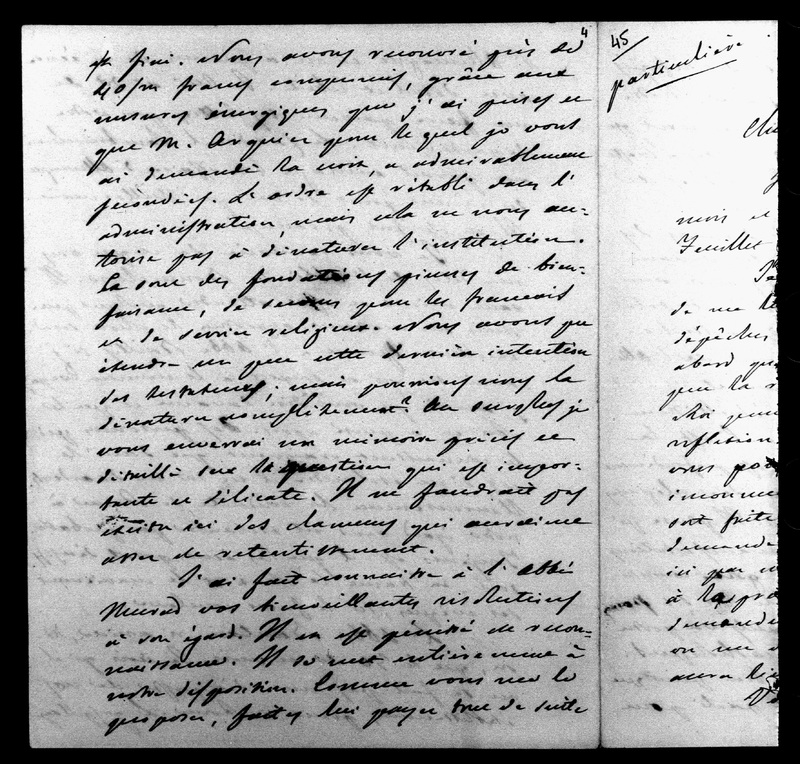 4
est fini. Nous avons recouvré près de
40/m francs compensés, grâce aux
mesures énergiques que j'ai prises et
que M. Arquier pour lequel je vous
ai demandé la croix, a admirablement
secondées. L'ordre est rétabli dans l'
administration, mais cela ne nous au-
torise pas à dénaturer l'institution.
Ce sont des fondations pieuses de bien-
faisance, de secours pour les français
et de service religieux. Nous avons pu
étendre un peu cette dernière intention
des testateurs; mais pourrions nous la
dénaturer complètement? Au surplus je
vous enverrai un mémoire précis et
détaillé sur la question qui est impor-
tante et délicate. Il ne faudrait pas
ici des clameurs qui auraient
assez de retentissement.
J'ai fait connaître à l'abbé
Murad vos bienveillantes résolutions
à son égard. Il en est pénétré de recon-
naissance. Il se met entièrement à
votre disposition. Comme vous me le
proposez, faites lui payer tout de suite
45
particulière
mois et
Feuillet
de me
dépêches
abord
que la
Roi pour
réflexion
vous
soit faite
demande
ici par
à la
demande
ou me
aura